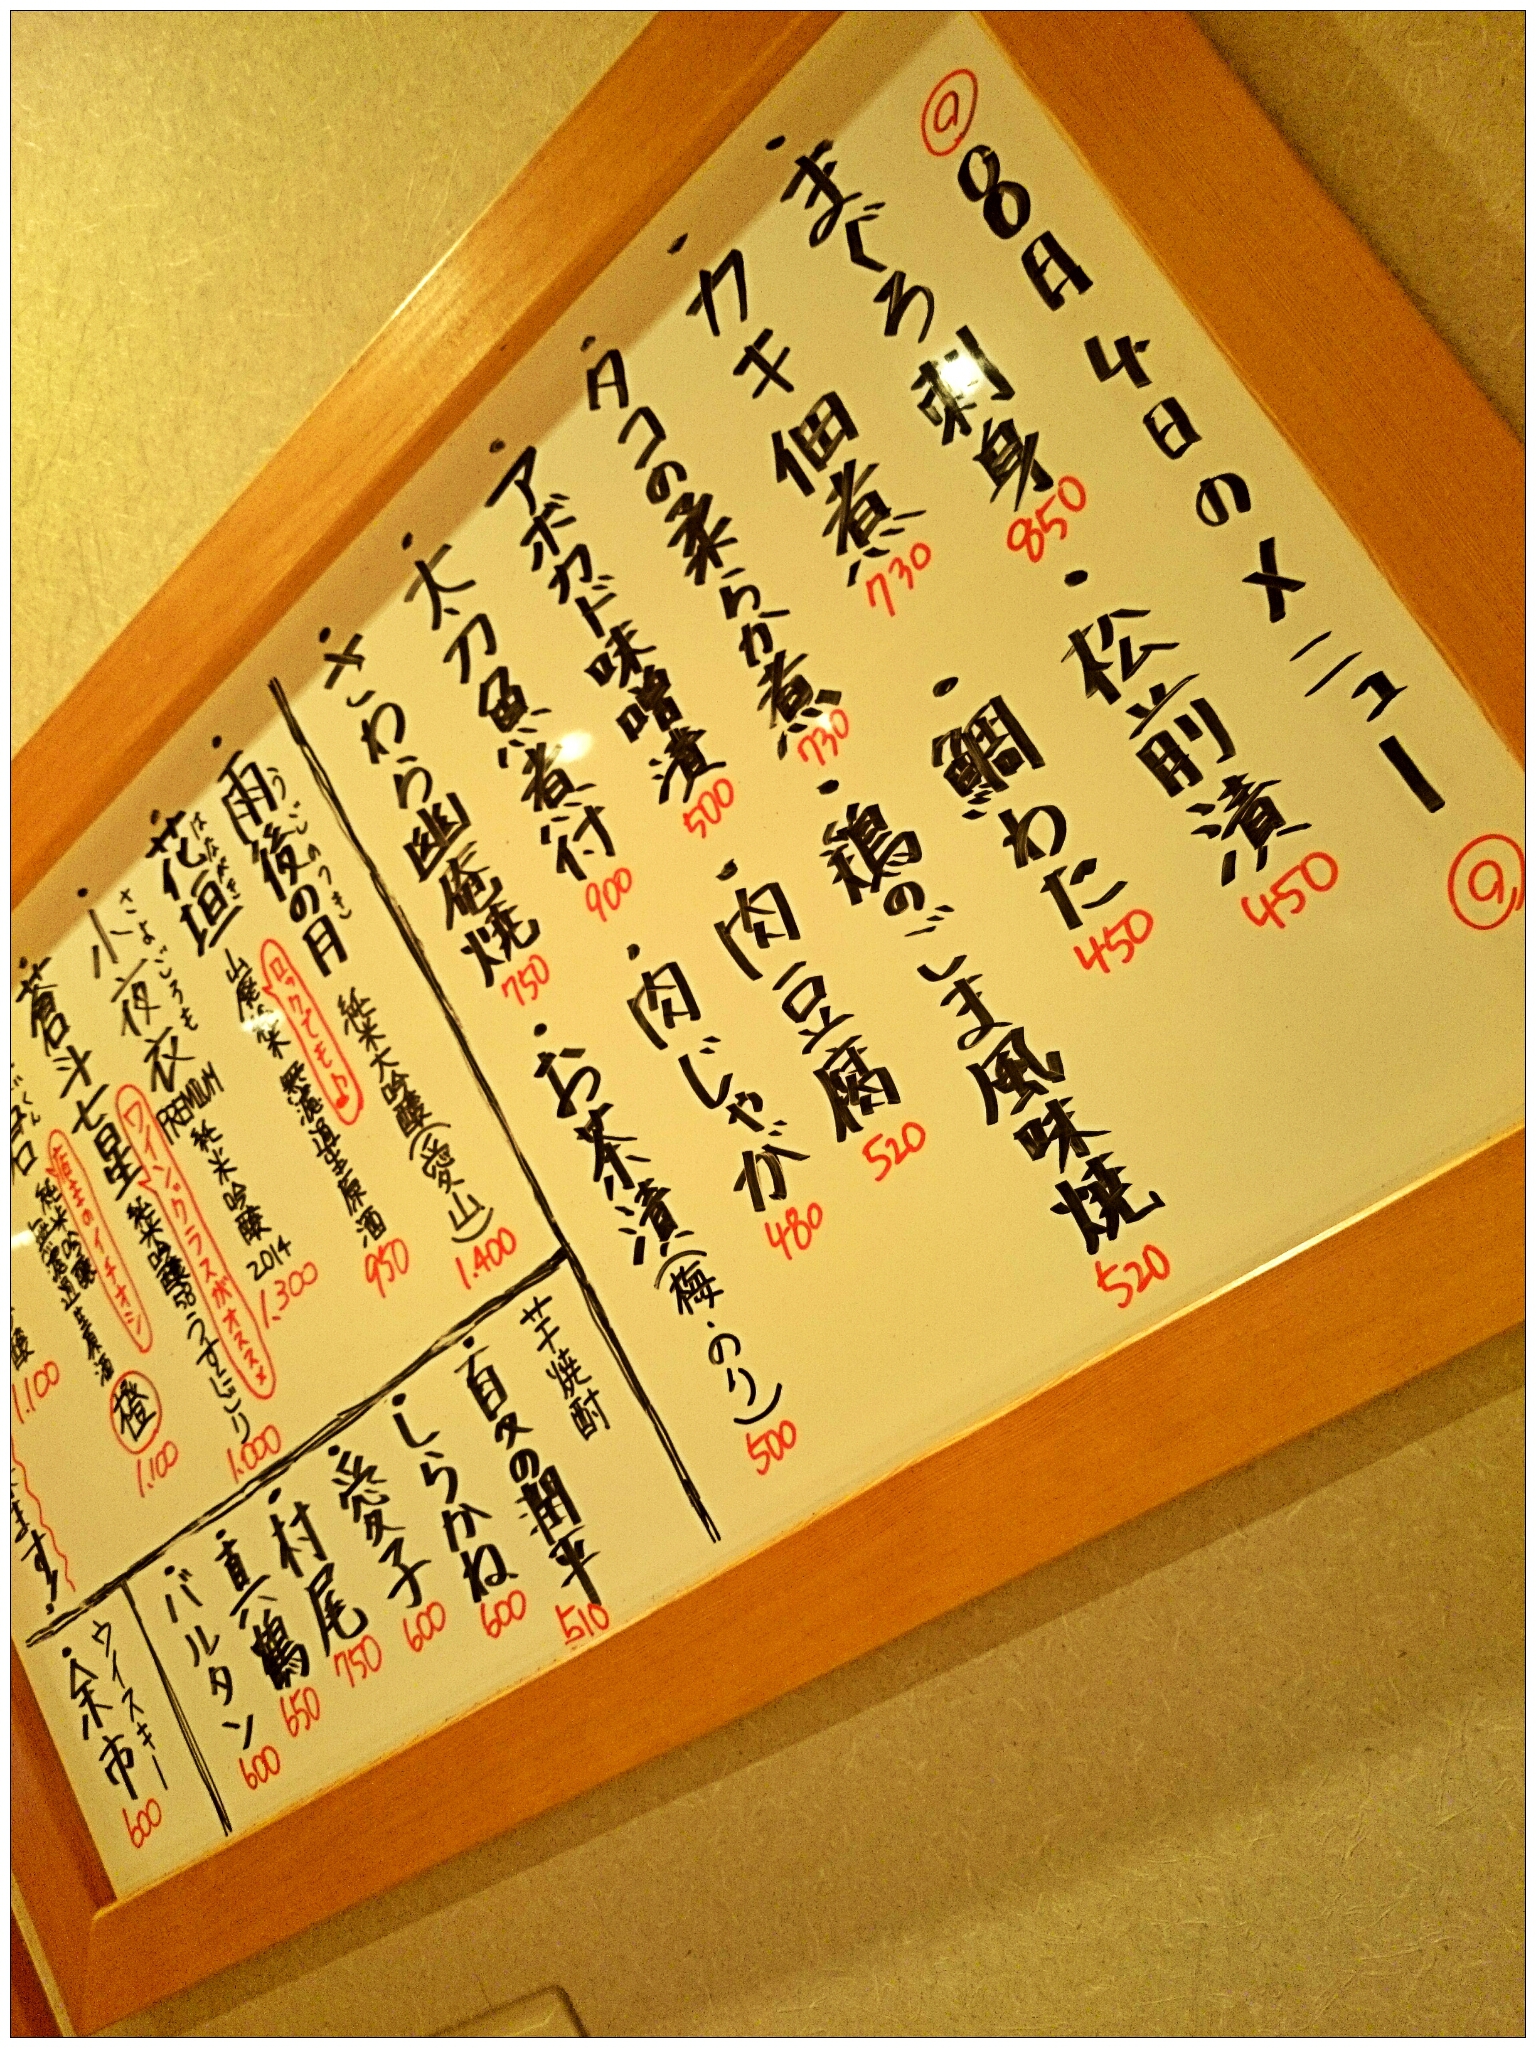 @8月4日のメニュー@
・まぐろ刺身 850
・松前漬 450
・カキ佃煮 730
・鯛わた 450
・タコの柔らか煮 730
・鶏のごま風味焼 520
・アボカド味噌漬 500
・肉豆腐 520
・太刀魚煮付 900
・肉じゃが 480
・さわら幽庵焼 750
・お茶漬(梅・のり) 500
・雨後の月 純米大吟醸(愛山) 1.400
うごのつき
ロックでも♪
・花垣 山廃純米 無濾過生原酒 950
はながき
・小夜衣 PREMIUM 純米吟醸 2014 1.300
さよごろも
ワイングラスがオススメ
・蒼斗七星 純米吟醸58 うすにごり 1.000
店主のイチオシ
純米吟醸 無濾過生原酒 橙 1.100
1.100
ます!
芋焼酎
・百々の潤平 510
・しらかね 600
・愛子 600
・村尾 750
・真鶴 650
・バルタン 600
ウイスキー
・余市 600